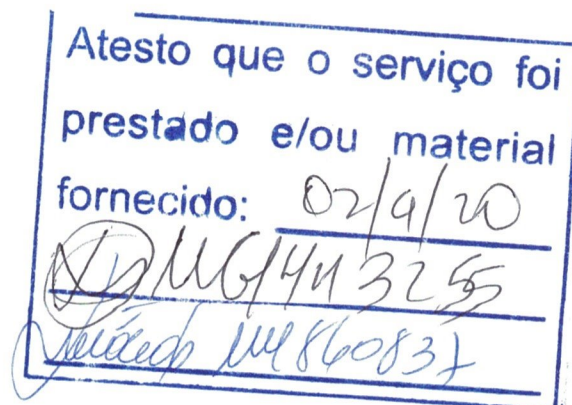 Atesto que o serviço foi
prestado e/ou material
fornecido: 02/9/20
MG14413255
860837